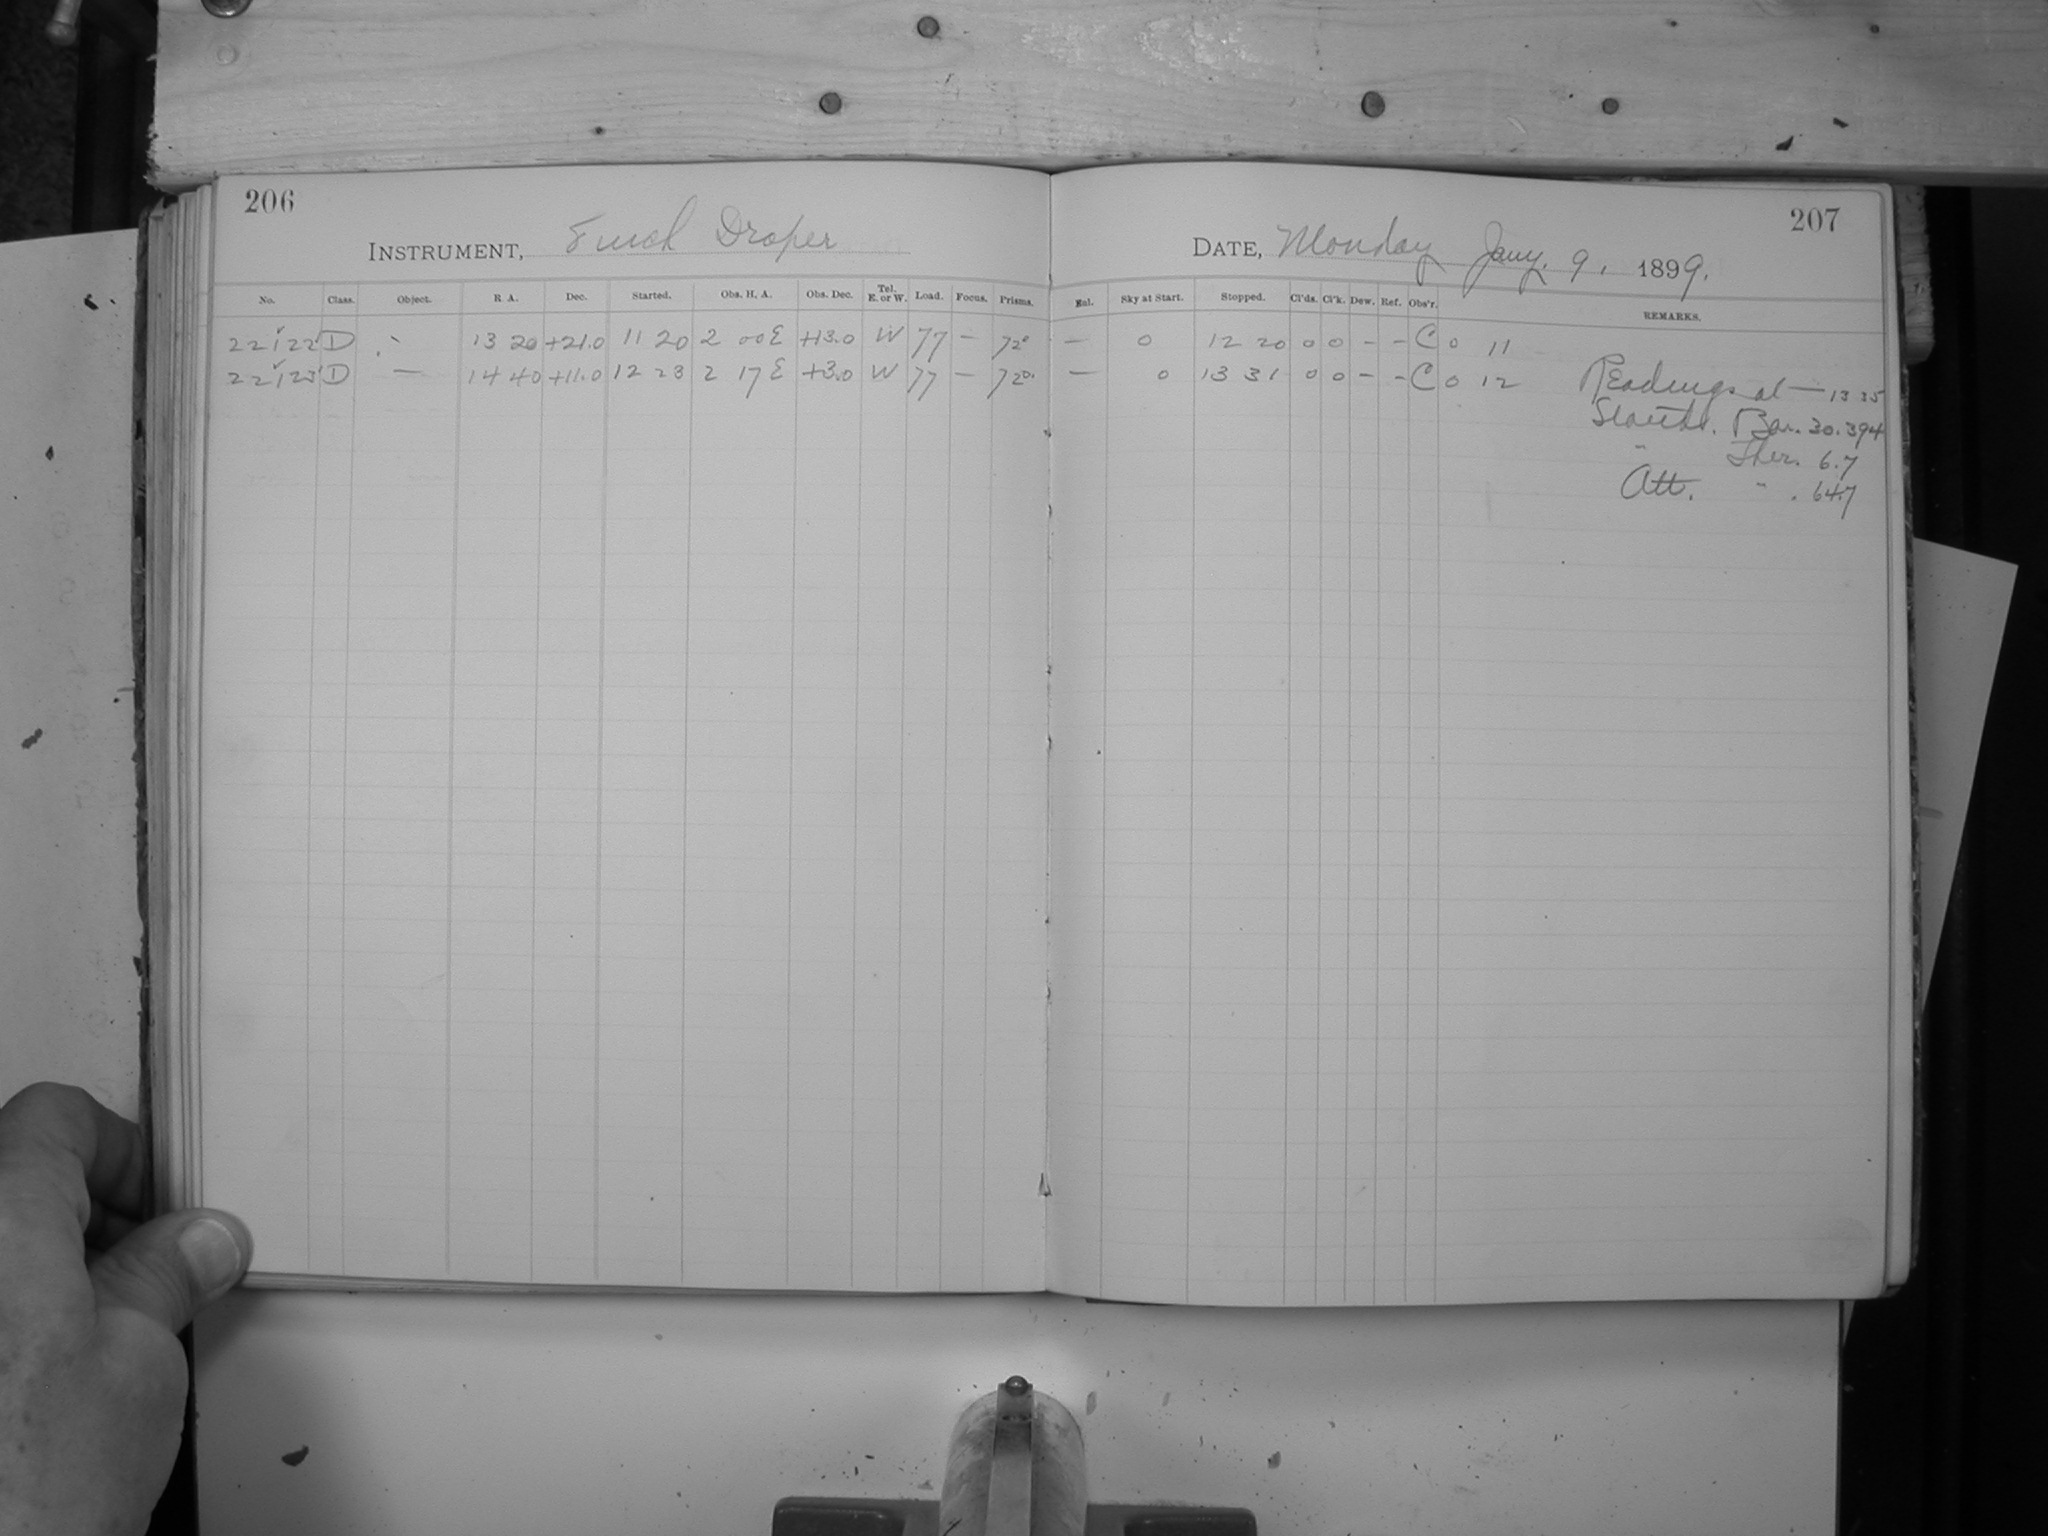 206
INSTRUMENT, 8 inch Draper
No. Class. Object. R. A. Dec. Started. Obs. H. A. Obs. Dec. Tel. E. or W. Load. Focus. Prisms.
22122 D 13 20 +21.0 11 20 2 00 E +13.0 W 77 — 72°
22123 D — 14 40 +11.0 12 23 2 17 E +3.0 W 77 — 72°.
207
DATE, Monday Jany. 9, 1899.
Eal. Sky at Start. Stopped. Cl'ds. Cl'k. Dew. Ref. Obs'r. REMARKS.
— 0 12 20 0 0 - - C 0 11
— 0 13 31 0 0 - - C 0 12
Readings at — 13 35
Bar. 30.394
" Ther. 6.7
Att. " . 64.7